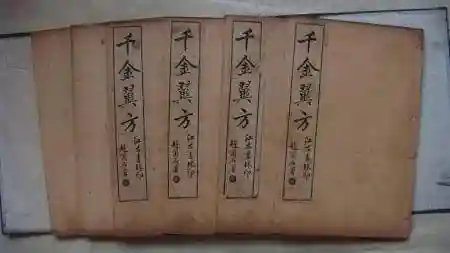 千金翼方
江左書林印
千金翼方
江左書林印
千金翼方
江左書林印
千金翼方
江左書林印